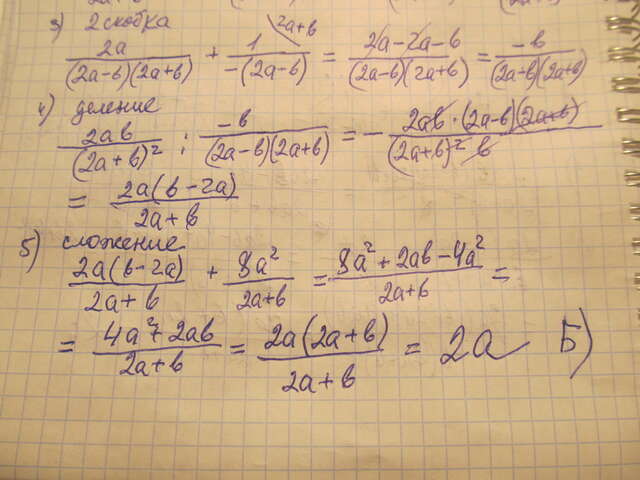 3) 2 скобка
2a/((2a-b)(2a+b)) + 1/(-(2a-b)) 2a+b = (2a-2a-b)/((2a-b)(2a+b)) = -b/((2a-b)(2a+b))
4) деление
2ab/(2a+b)² : -b/((2a-b)(2a+b)) = - 2ab·(2a-b)(2a+b)/((2a+b)² b)
= 2a(b-2a)/(2a+b)
5) сложение
2a(b-2a)/(2a+b) + 8a²/(2a+b) = (8a²+2ab-4a²)/(2a+b) =
= (4a²+2ab)/(2a+b) = 2a(2a+b)/(2a+b) = 2a Б)